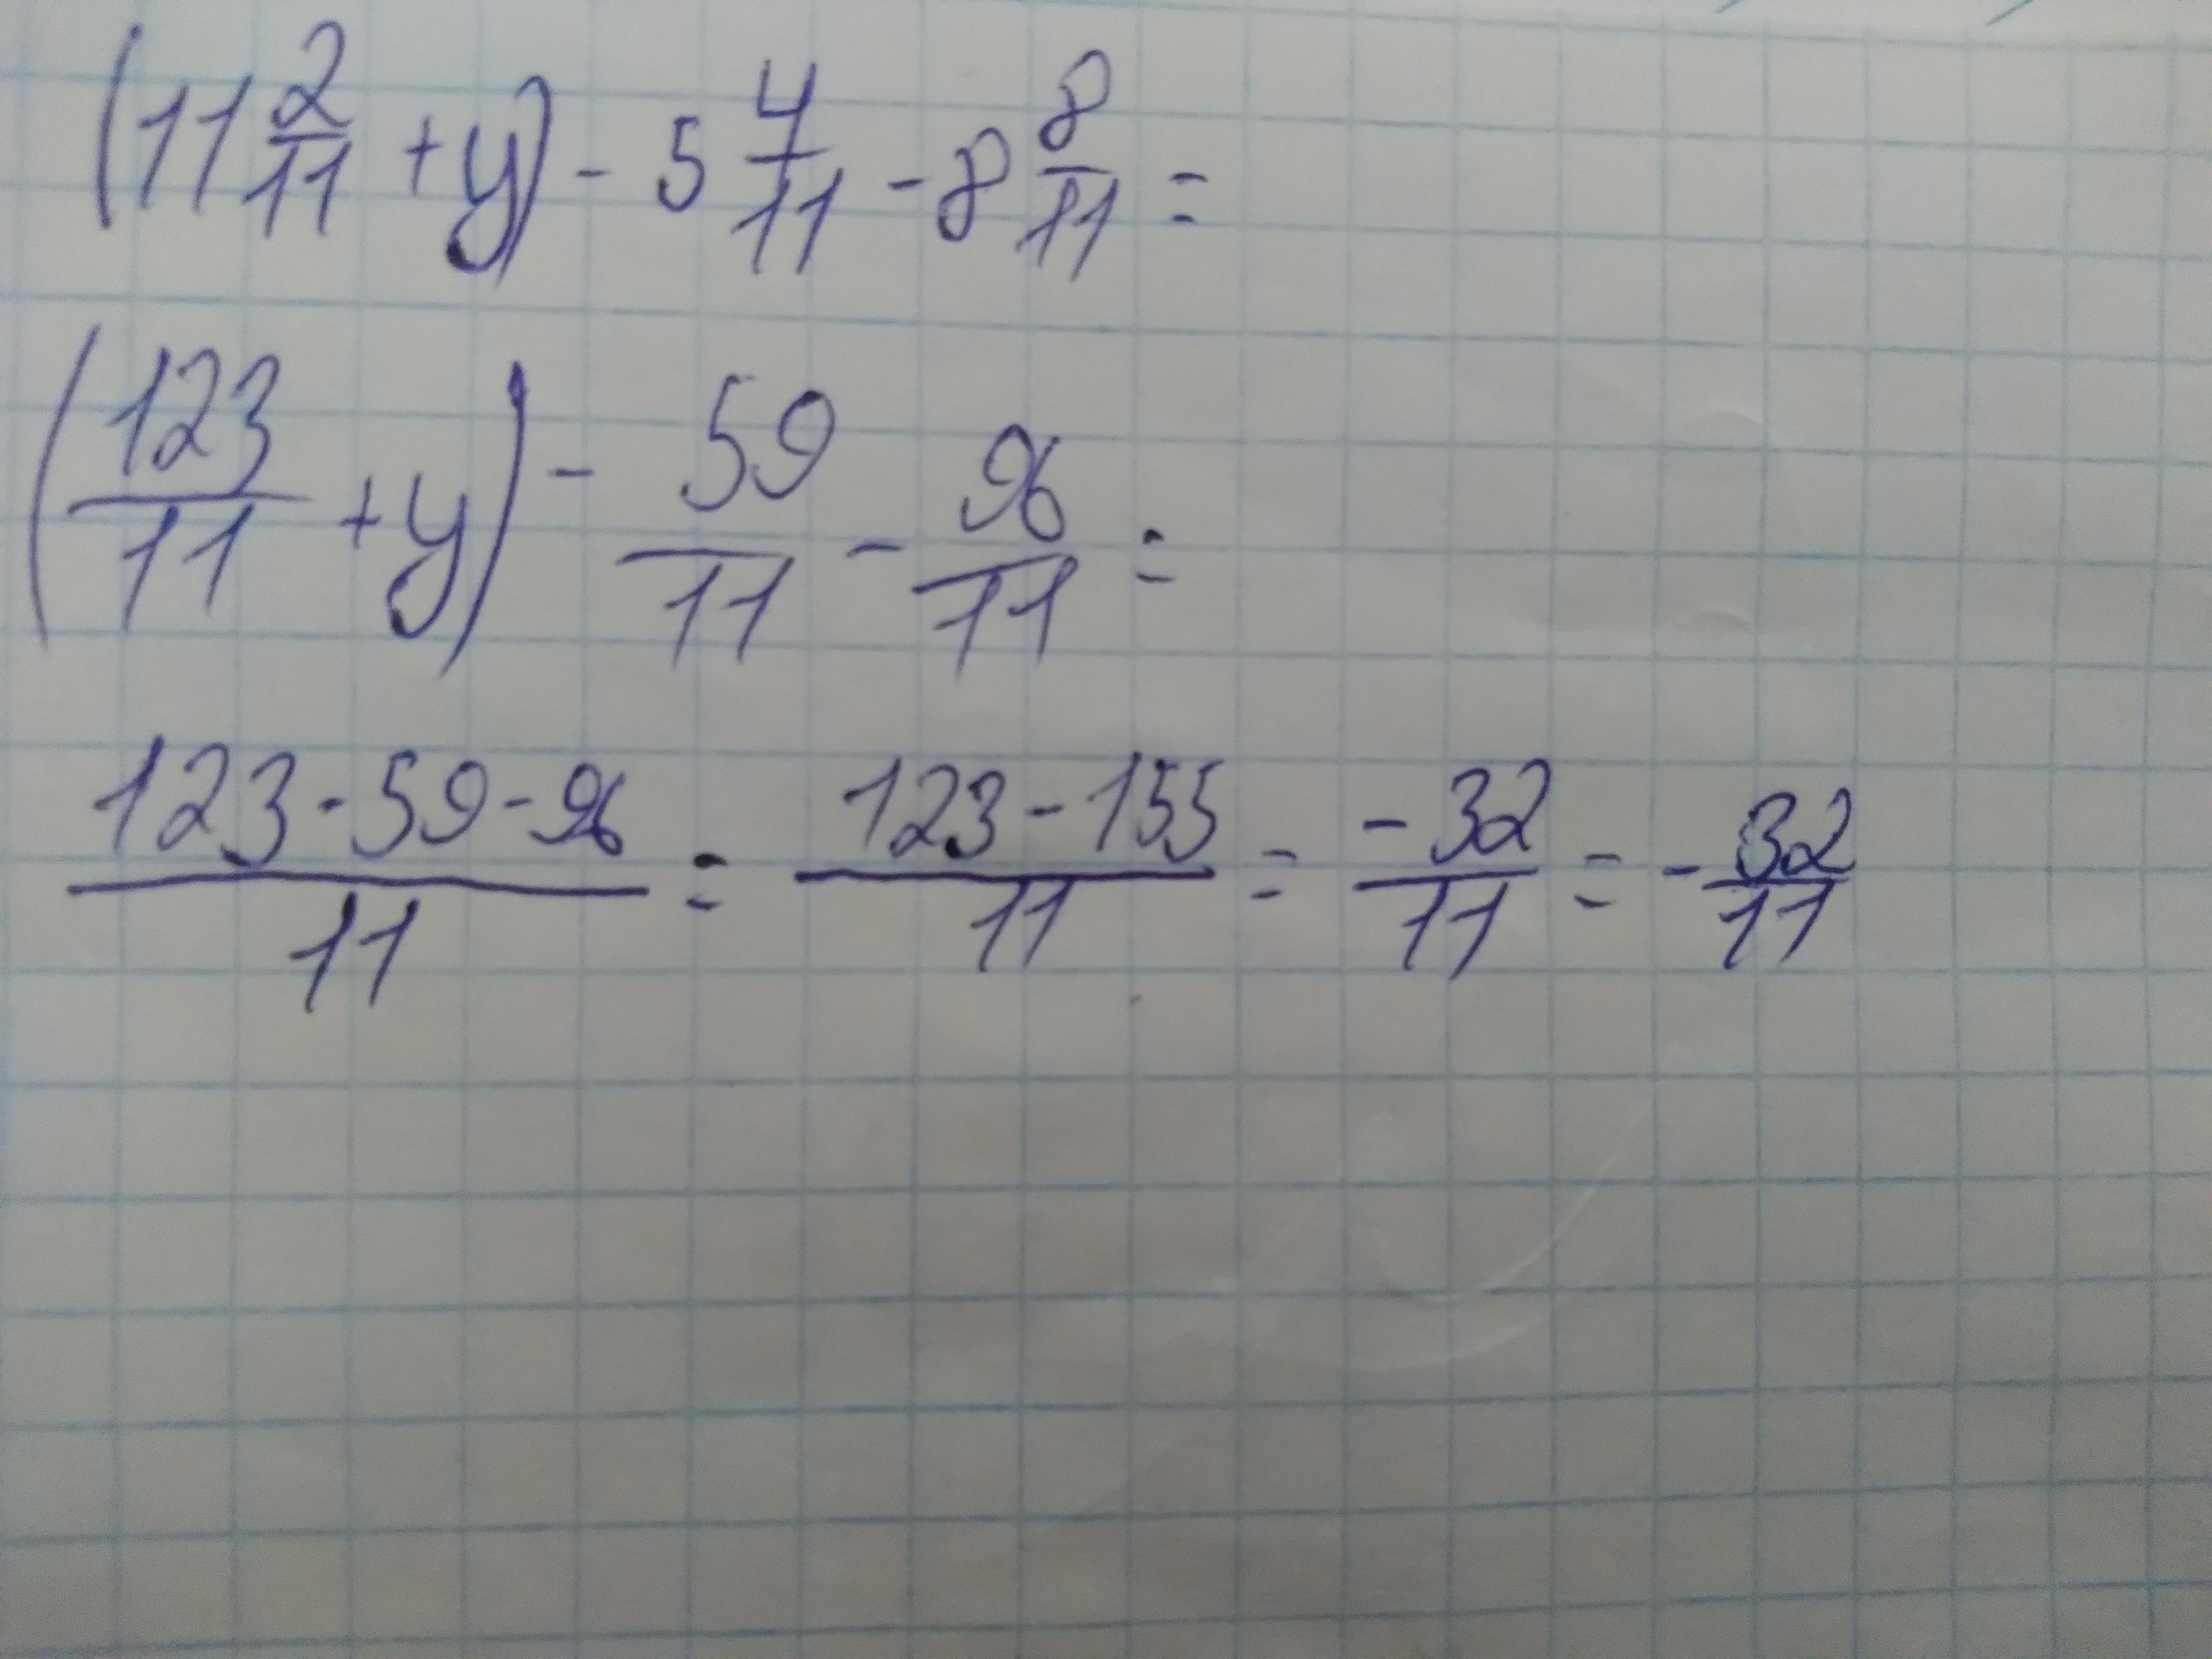 (11 2/11 + y) - 5 4/11 - 8 8/11 =
(123/11 + y) - 59/11 - 96/11 =
(123-59-96)/11 = (123-155)/11 = -32/11 = -32/11